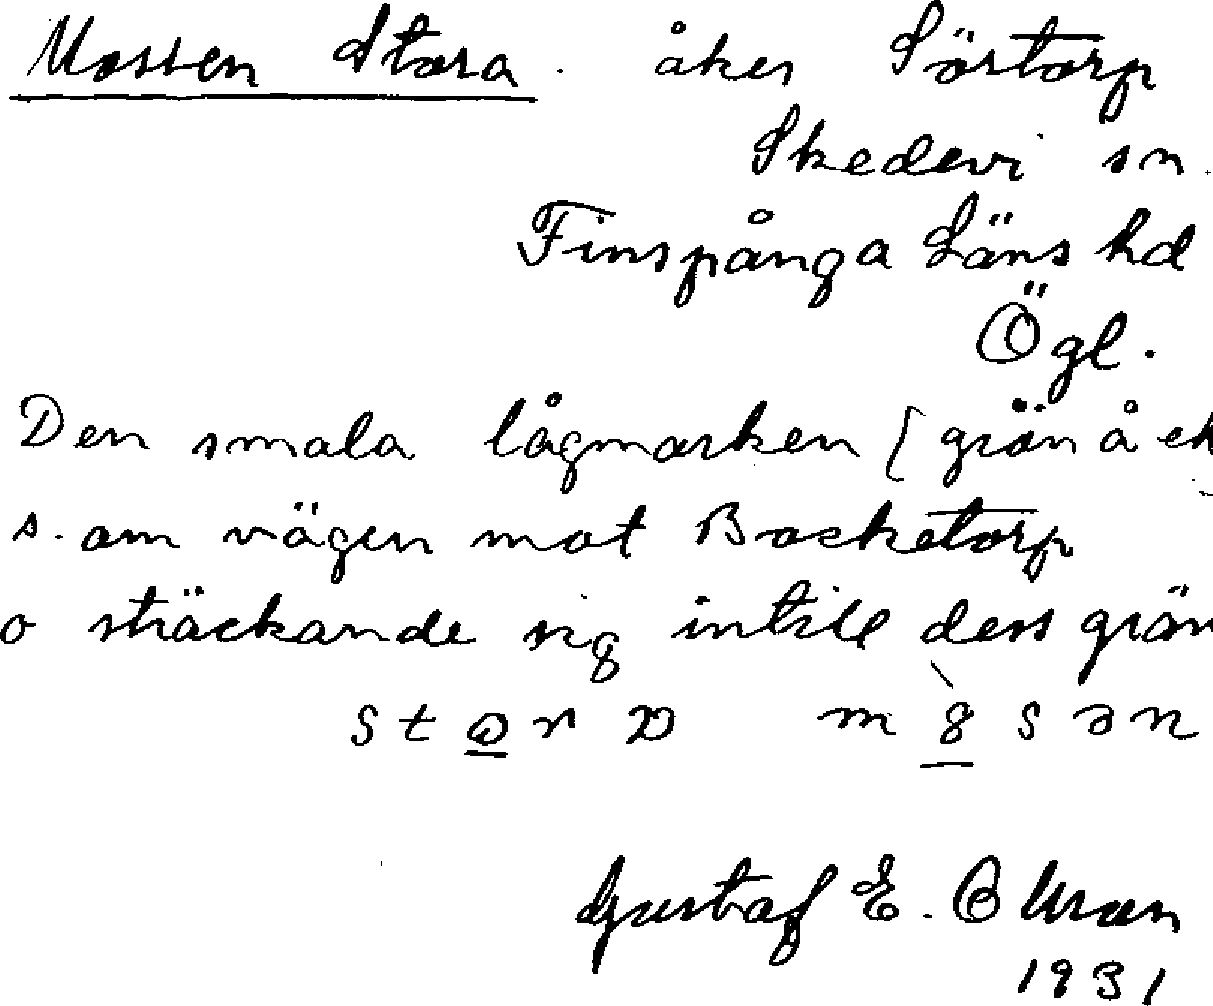 Mossen Stora. åker Sörtorp
Skedevi sn.
Finspånga Läns hd
Ögl.
Den smala lågmarken (grön å ek
s. om vägen mot Bocketorp
o sträckande sig intill dess grän
Gustaf E.
1931